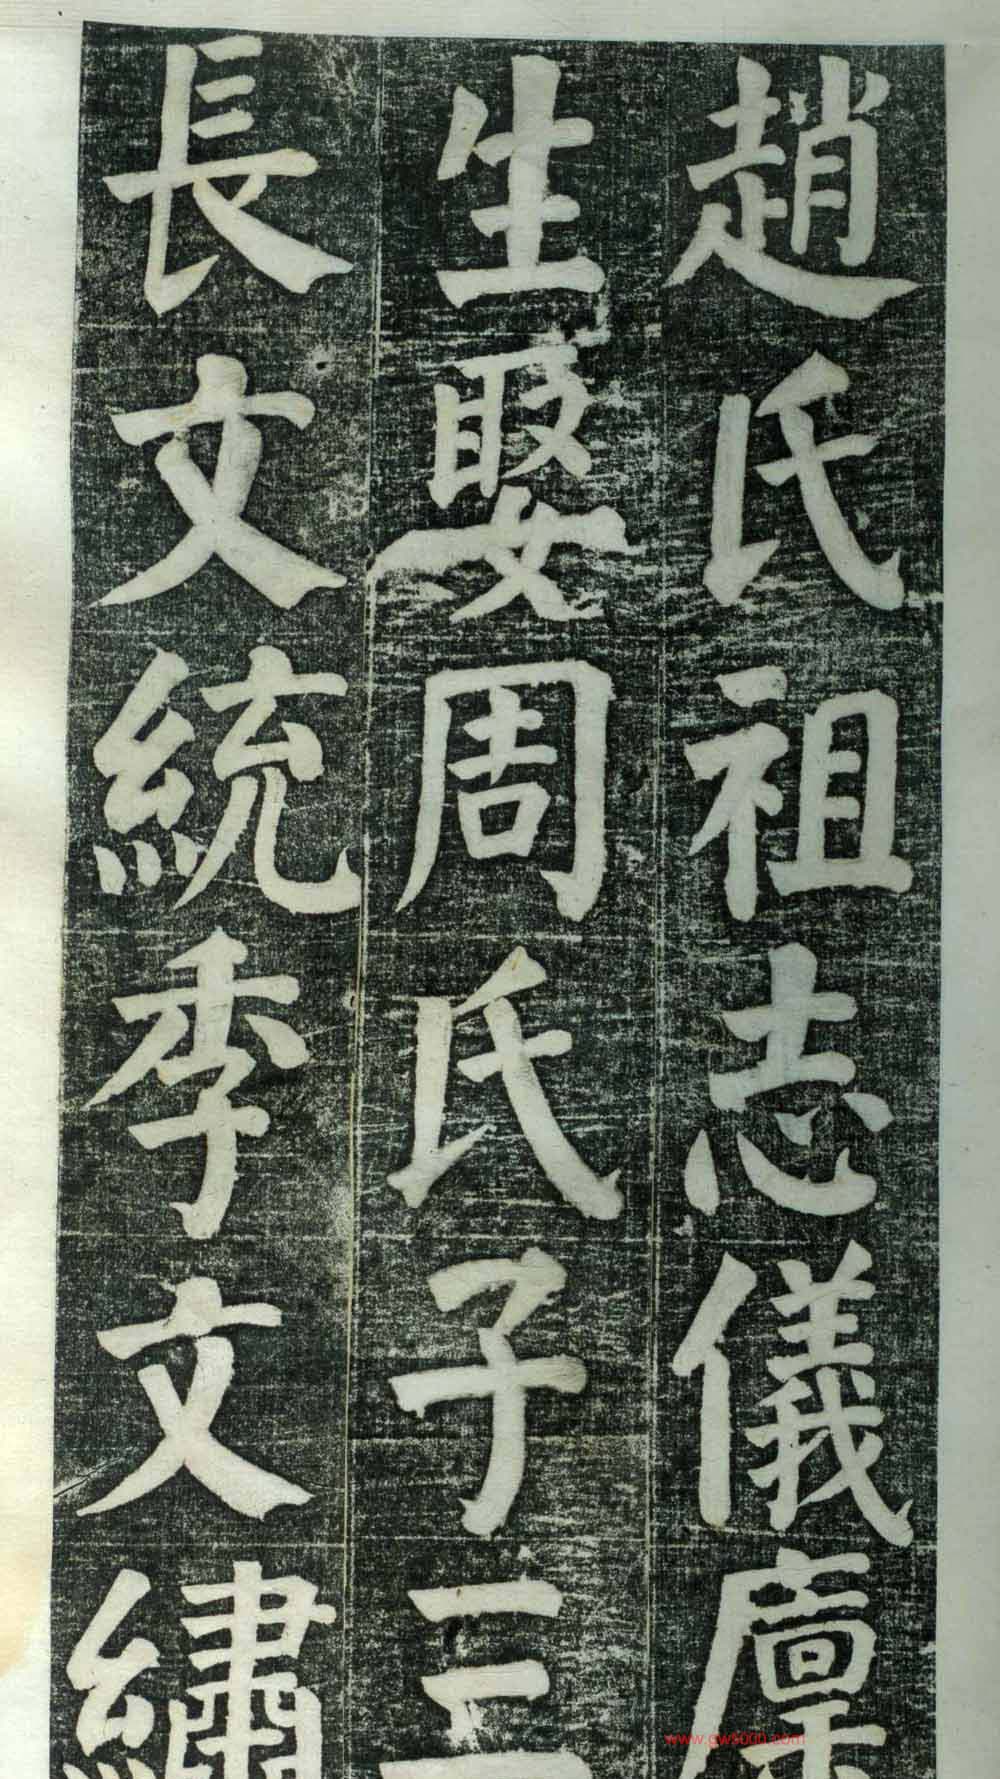 趙氏祖志儀廩
生娶周氏子三
長文統季文繡
www.gws000.com